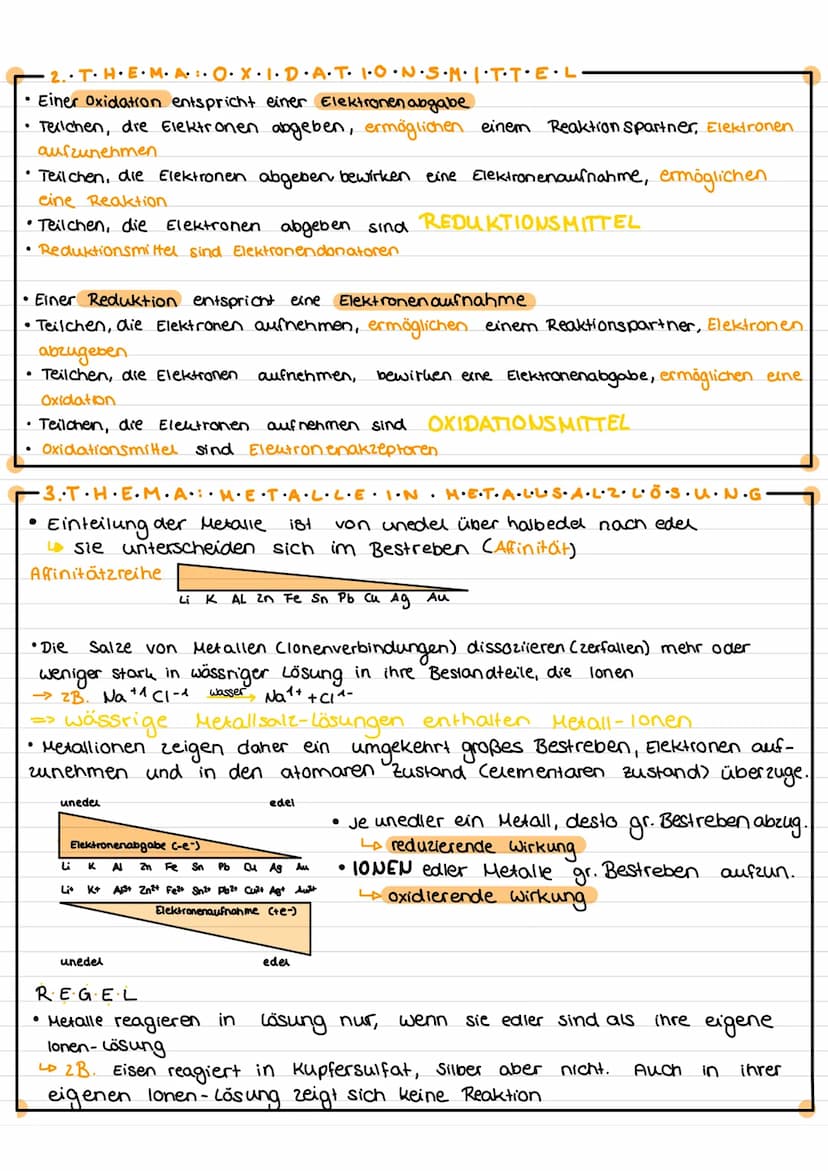 2.·T·H·E·M·A·:·O·X·I·D·A·T·I·O·N·S·M·I·T·T·E·L
• Einer Oxidation entspricht einer Elektronenabgabe
• Teilchen, die Elektronen abgeben, ermöglichen einem Reaktionspartner, Elektronen
aufzunehmen
• Teilchen, die Elektronen abgeben bewirken eine Elektronenaufnahme, ermöglichen
eine Reaktion
• Teilchen, die Elektronen abgeben sind REDUKTIONSMITTEL
• Reduktionsmittel sind Elektronendonatoren
• Einer Reduktion entspricht eine Elektronenaufnahme
• Teilchen, die Elektronen aufnehmen, ermöglichen einem Reaktionspartner, Elektronen
abzugeben
• Teilchen, die Elektronen aufnehmen, bewirken eine Elektronenabgabe, ermöglichen eine
Oxidation
• Teilchen, die Elektronen aufnehmen sind OXIDATIONSMITTEL
• Oxidationsmittel sind Elektronenakzeptoren
3.·T·H·E·M·A·:·M·E·T·A·L·L·E·I·N·M·E·T·A·L·L·S·A·L·Z·L·Ö·S·U·N·G
• Einteilung der Metalle ist von unedel über halbedel nach edel
↳ sie unterscheiden sich im Bestreben (Affinität)
Affinitätzreihe
Li K AL Zn Fe Sn Pb Cu Ag Au
• Die Salze von Metallen (Ionenverbindungen) dissoziieren (zerfallen) mehr oder
weniger stark in wässriger Lösung in ihre Bestandteile, die Ionen
→ zB. Na⁺¹ Cl⁻¹ wasser→ Na¹⁺ + Cl¹⁻
=> wässrige Metallsalz-Lösungen enthalten Metall-Ionen
• Metallionen zeigen daher ein umgekehrt großes Bestreben, Elektronen auf-
zunehmen und in den atomaren Zustand (elementaren Zustand) überzuge.
unedel edel
Elektronenabgabe (-e⁻)
Li K Al Zn Fe Sn Pb Cu Ag Au
Li⁺ K⁺ Al³⁺ Zn²⁺ Fe²⁺ Sn²⁺ Pb²⁺ Cu²⁺ Ag⁺
Elektronenaufnahme (+e⁻)
unedel edel
• Je unedler ein Metall, desto gr. Bestreben abzug.
↳ reduzierende Wirkung
• IONEN edler Metalle gr. Bestreben aufzun.
↳ oxidierende Wirkung
R·E·G·E·L
• Metalle reagieren in Lösung nur, wenn sie edler sind als ihre eigene
Ionen-Lösung
↳ zB. Eisen reagiert in Kupfersulfat, Silber aber nicht. Auch in ihrer
eigenen Ionen-Lösung zeigt sich keine Reaktion